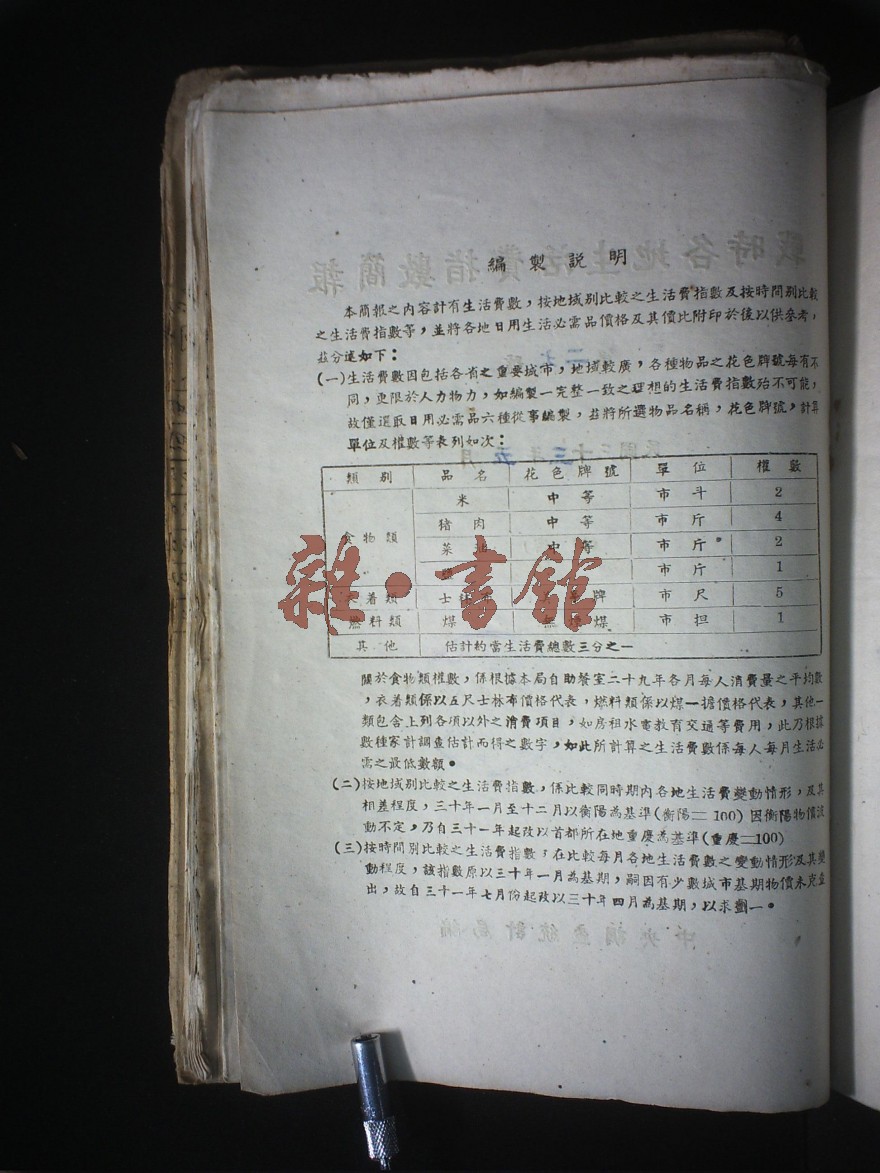 編製說明
本簡報之內容計有生活費數，按地域別比較之生活費指數及按時間別比較
之生活費指數等，並將各地日用生活必需品價格及其價比附印於後以供參考，
茲分述如下：
(一)生活費數因包括各省之重要城市，地域較廣，各種物品之花色牌號每有不
同，更限於人力物力，如編製一完整一致之理想的生活費指數殆不可能，
故僅選取日用必需品六種從事編製，茲將所選物品名稱，花色牌號，計算
單位及權數等表列如次：
類別 品名 花色牌號 單位 權數
米 中等 市斗 2
猪肉 中等 市斤 4
食物類 菜 中等 市斤 2
市斤 1
衣着類 士 牌 市尺 5
燃料類 煤 煤 市担 1
其他 估計約當生活費總數三分之一
關於食物類權數，係根據本局自助餐室二十九年各月每人消費量之平均數
，衣着類係以五尺士林布價格代表，燃料類係以煤一擔價格代表，其他一
類包含上列各項以外之消費項目，如房租水電教育交通等費用，此乃根據
數種家計調查估計而得之數字，如此所計算之生活費數係每人每月生活必
需之最低數額。
(二)按地域別比較之生活費指數，係比較同時期內各地生活費變動情形，及其
相差程度，三十年一月至十二月以衡陽為基準(衡陽＝100)因衡陽物價波
動不定，乃自三十一年起改以首都所在地重慶為基準(重慶＝100)
(三)按時間別比較之生活費指數，在比較每月各地生活費數之變動情形及其變
動程度，該指數原以三十年一月為基期，嗣因有少數城市基期物價未克查
出，故自三十一年七月份起改以三十年四月為基期，以求劃一。
雜·書館